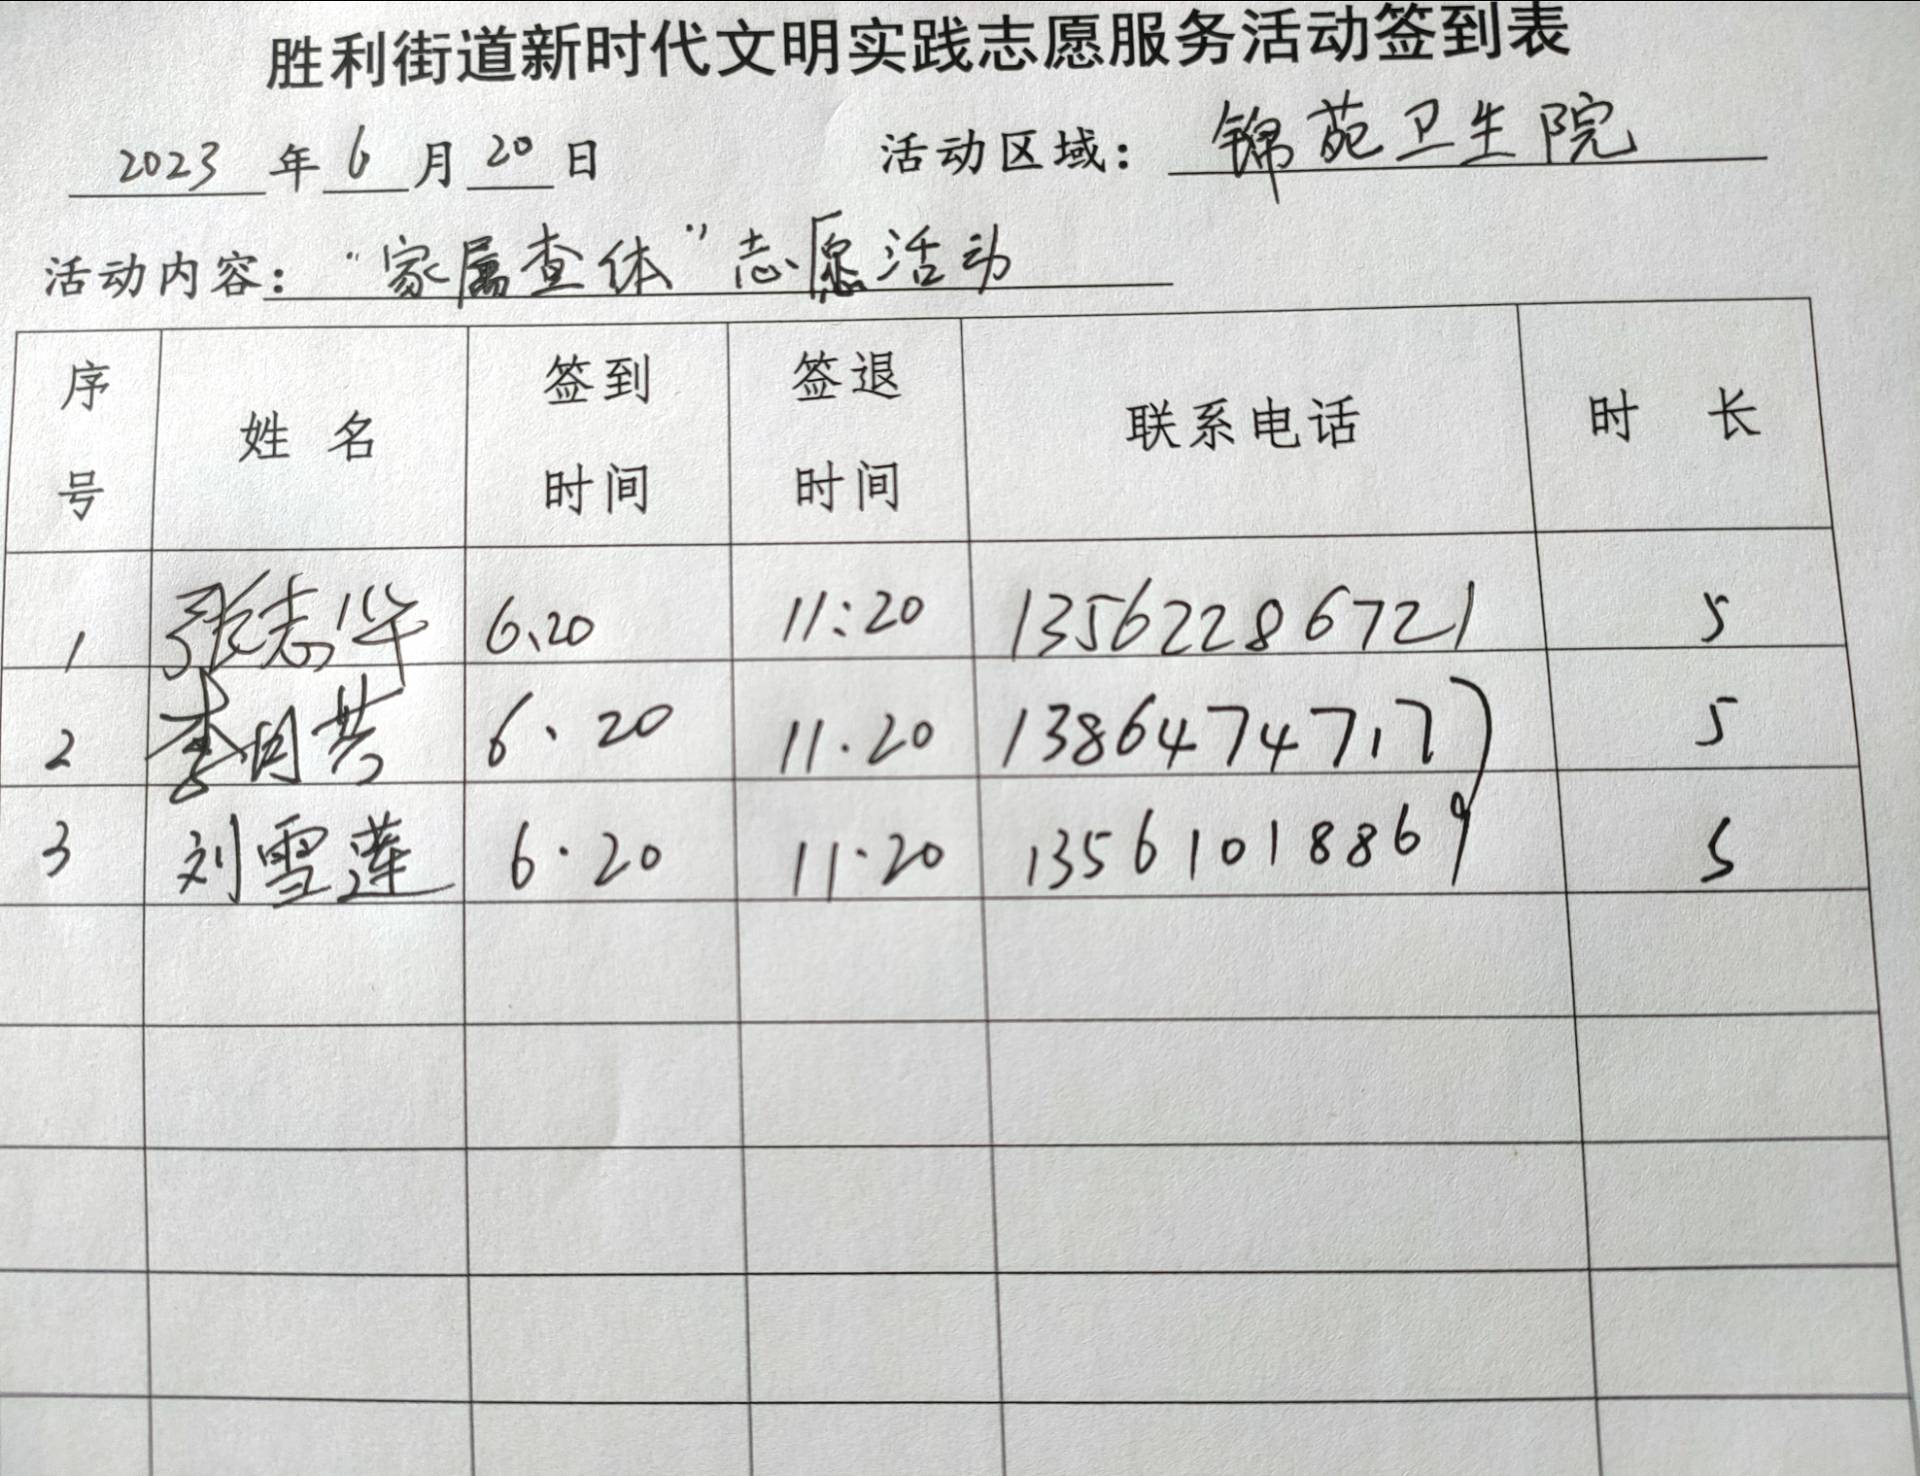 胜利街道新时代文明实践志愿服务活动签到表
2023 年 6 月 20 日 活动区域： 锦苑卫生院
活动内容： “家属查体”志愿活动
序号 姓名 签到时间 签退时间 联系电话 时长
1 张志华 6.20 11:20 13562286721 5
2 李月芳 6.20 11.20 13864747177 5
3 刘雪莲 6.20 11.20 13561018869 5